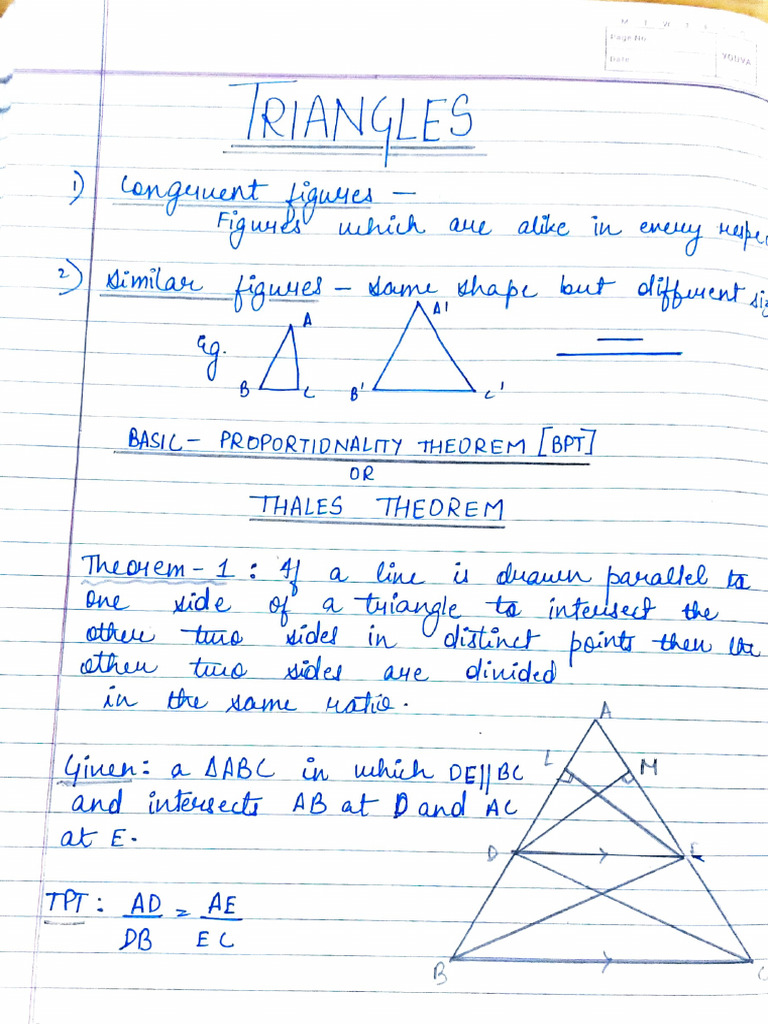 Page No
Date
YOUVA
TRIANGLES
1) Congruent figures –
Figures which are alike in every
2) Similar figures – same shape but different
Eg.
A
B
C
A'
B'
C'
BASIC – PROPORTIONALITY THEOREM [BPT]
OR
THALES THEOREM
Theorem - 1 : If a line is drawn parallel to
one side of a triangle to intersect the
other two sides in distinct points then the
other two sides are divided
in the same ratio.
Given: a ΔABC in which DE||BC
and intersects AB at D and AC
at E.
TPT : AD/DB = AE/EC
A
L
M
D
E
B
C